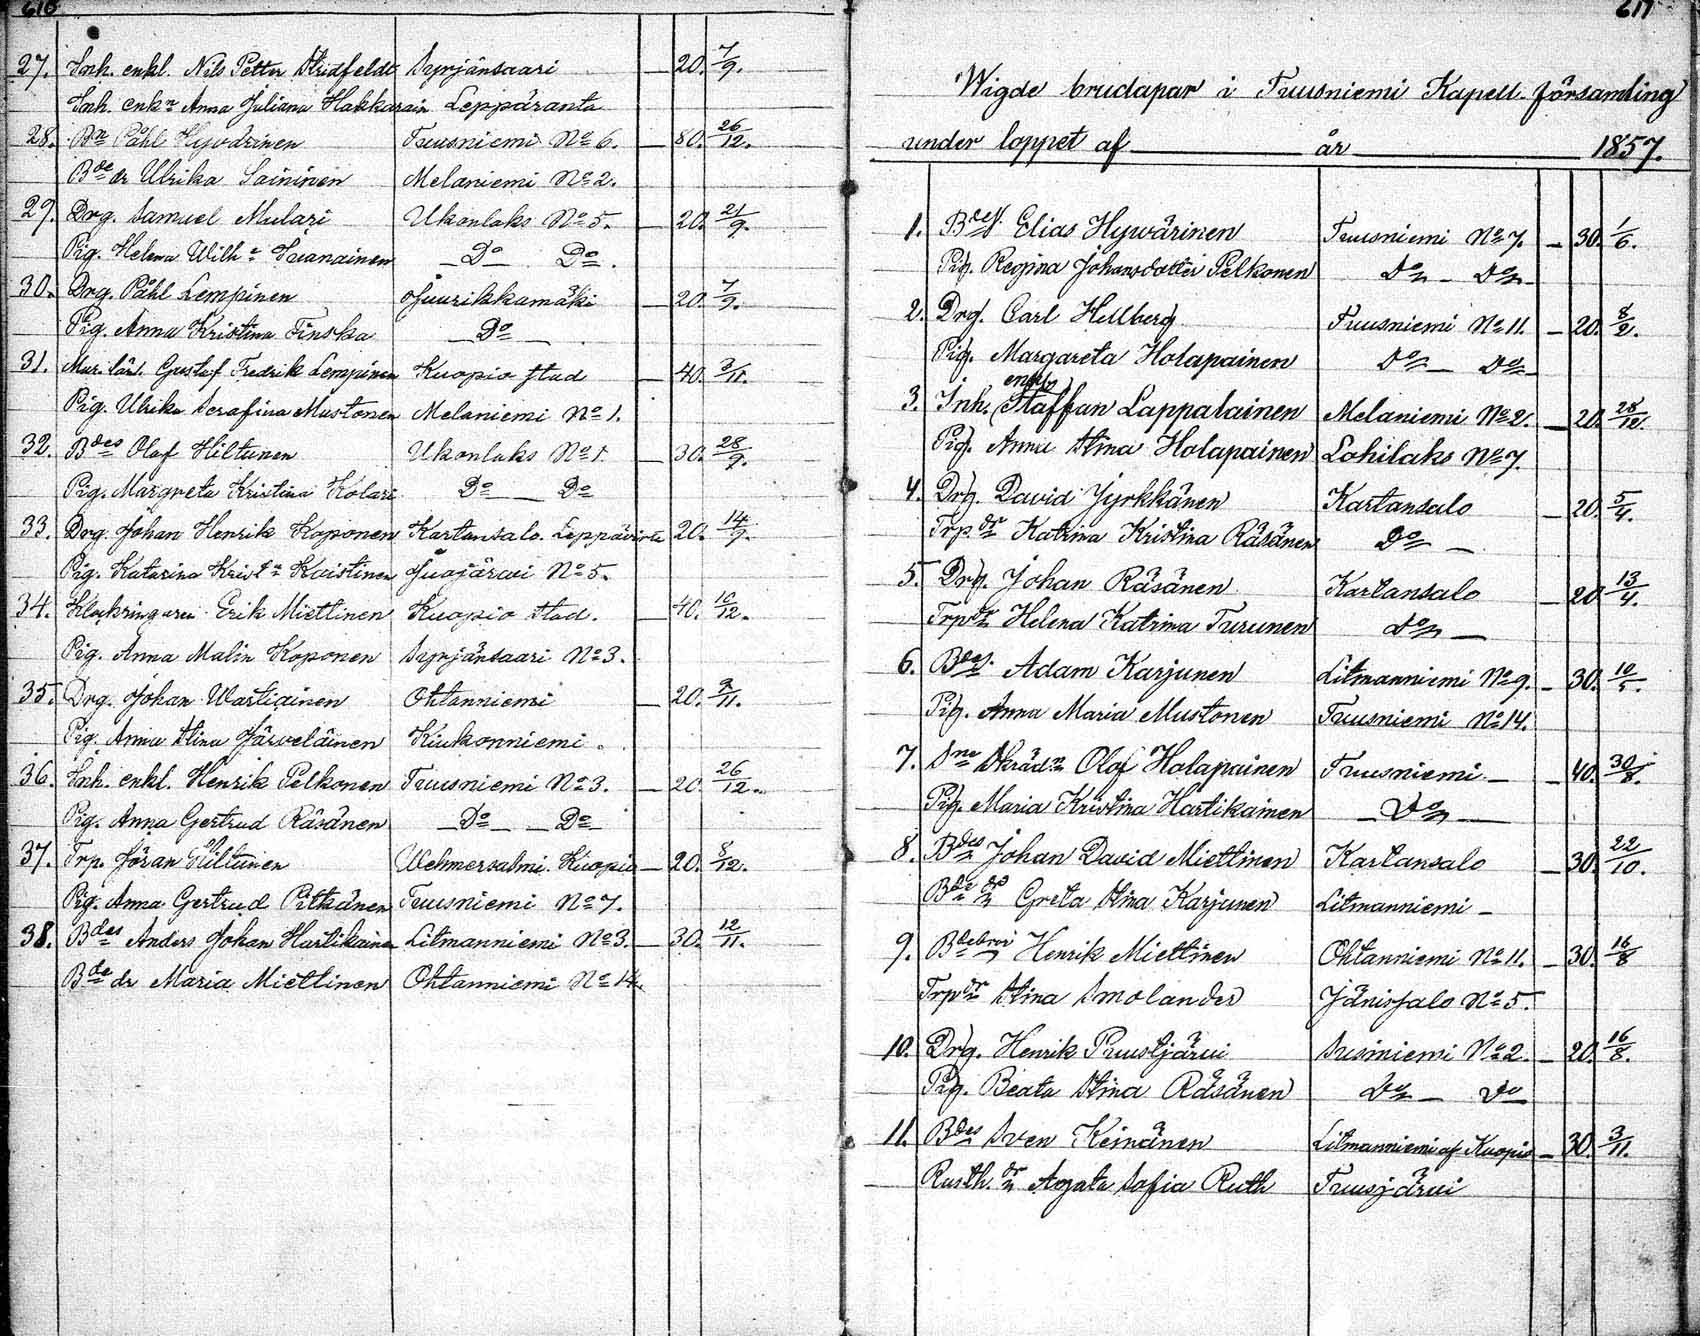 616
27. Inh. enkl. Nils Petter Stridfeldt Syrjänsaari — 20. 7/9.
Inh. enka Anna Juliana Hakkarain Leppäranta
28. Bn Påhl Hyvärinen Tuusniemi No 6. — 80. 26/12.
Bde dr Ulrika Saininen Melaniemi No 2.
29. Drg. Samuel Mulari Ukonlaks No 5. — 20. 21/9.
Pig. Helena Wilha Suanainen — Do — Do.
30. Drg. Påhl Lempinen Juurikkamäki — 20. 7/9.
Pig. Anna Kristina Finska — Do —
31. Mur. lärl. Gustaf Fredrik Lempinen Kuopio stad — 40. 2/11.
Pig. Ulrika Serafina Mustonen Melaniemi No 1.
32. Bdes Olof Hiltunen Ukonlaks No 1. — 30. 28/9.
Pig. Margreta Kristina Kolari Do — Do
33. Drg. Johan Henrik Koponen Kartansalo. Leppävirta 20. 14/9.
Pig. Katarina Krista Kaistinen Juojärwi No 5.
34. Klockringaren Erik Miettinen Kuopio stad. — 40. 10/12.
Pig. Anna Malin Koponen Syrjänsaari No 3.
35. Drg. Johan Wartiainen Ohtanniemi — 20. 2/11.
Pig. Anna Stina Järveläinen Kiukonniemi.
36. Inh. enkl. Henrik Pelkonen Tuusniemi No 3. — 20. 26/12.
Pig. Anna Gertrud Räsänen — Do — — Do —
37. Trp. Jöran Hiltunen Wehmersalmi. Kuopio — 20. 8/12.
Pig. Anna Gertrud Pitkänen Tuusniemi No 7.
38. Bdes Anders Johan Hartikainen Litmanniemi No 3. — 30. 12/11.
Bde dr Maria Miettinen Ohtanniemi No 14.
617
Wigde brudapar i Tuusniemi Kapell församling
under loppet af — år — 1857.
1. Bdes. Elias Hywärinen Tuusniemi No 7. — 30. 1/6.
Pig. Regina Johansdotter Pelkonen Do — Do —
2. Drg. Carl Hellberg Tuusniemi No 11. — 20. 8/2.
Pig. Margareta Holapainen Do — Do —
enkl
3. Inh. Staffan Lappalainen Melaniemi No 2. — 20. 28/12.
Pig. Anna Stina Holapainen Lohilaks No 7.
4. Drg. David Jyrkkänen Kartansalo — 20. 5/4.
Trp dr Katrina Kristina Räsänen Do —
5. Drg. Johan Räsänen Kartansalo — 20 13/4.
Trp dr Helena Katrina Turunen Do —
6. Bdes. Adam Karjunen Litmanniemi No 9. — 30. 10/5.
Pig. Anna Maria Mustonen Tuusniemi No 14.
7. Sne Skräd. Olof Holapainen Tuusniemi — — 40. 30/8.
Pig. Maria Kristina Hartikainen — Do —
8. Bdes Johan David Miettinen Kartansalo — 30. 22/10.
Bde dr Greta Stina Karjunen Litmanniemi —
9. Bdebror Henrik Miettinen Ohtanniemi No 11. — 30. 16/8
Trp dr Stina Smolander Jänissalo No 5.
10. Drg. Henrik Puustjärvi Susiniemi No 2. — 20. 16/8.
Pig. Beata Stina Räsänen Do — Do
11. Bdes Sven Keinänen Litmanniemi af Kuopio — 30. 3/11.
Rusth. dr Agata Sofia Ruth Tuusjärvi